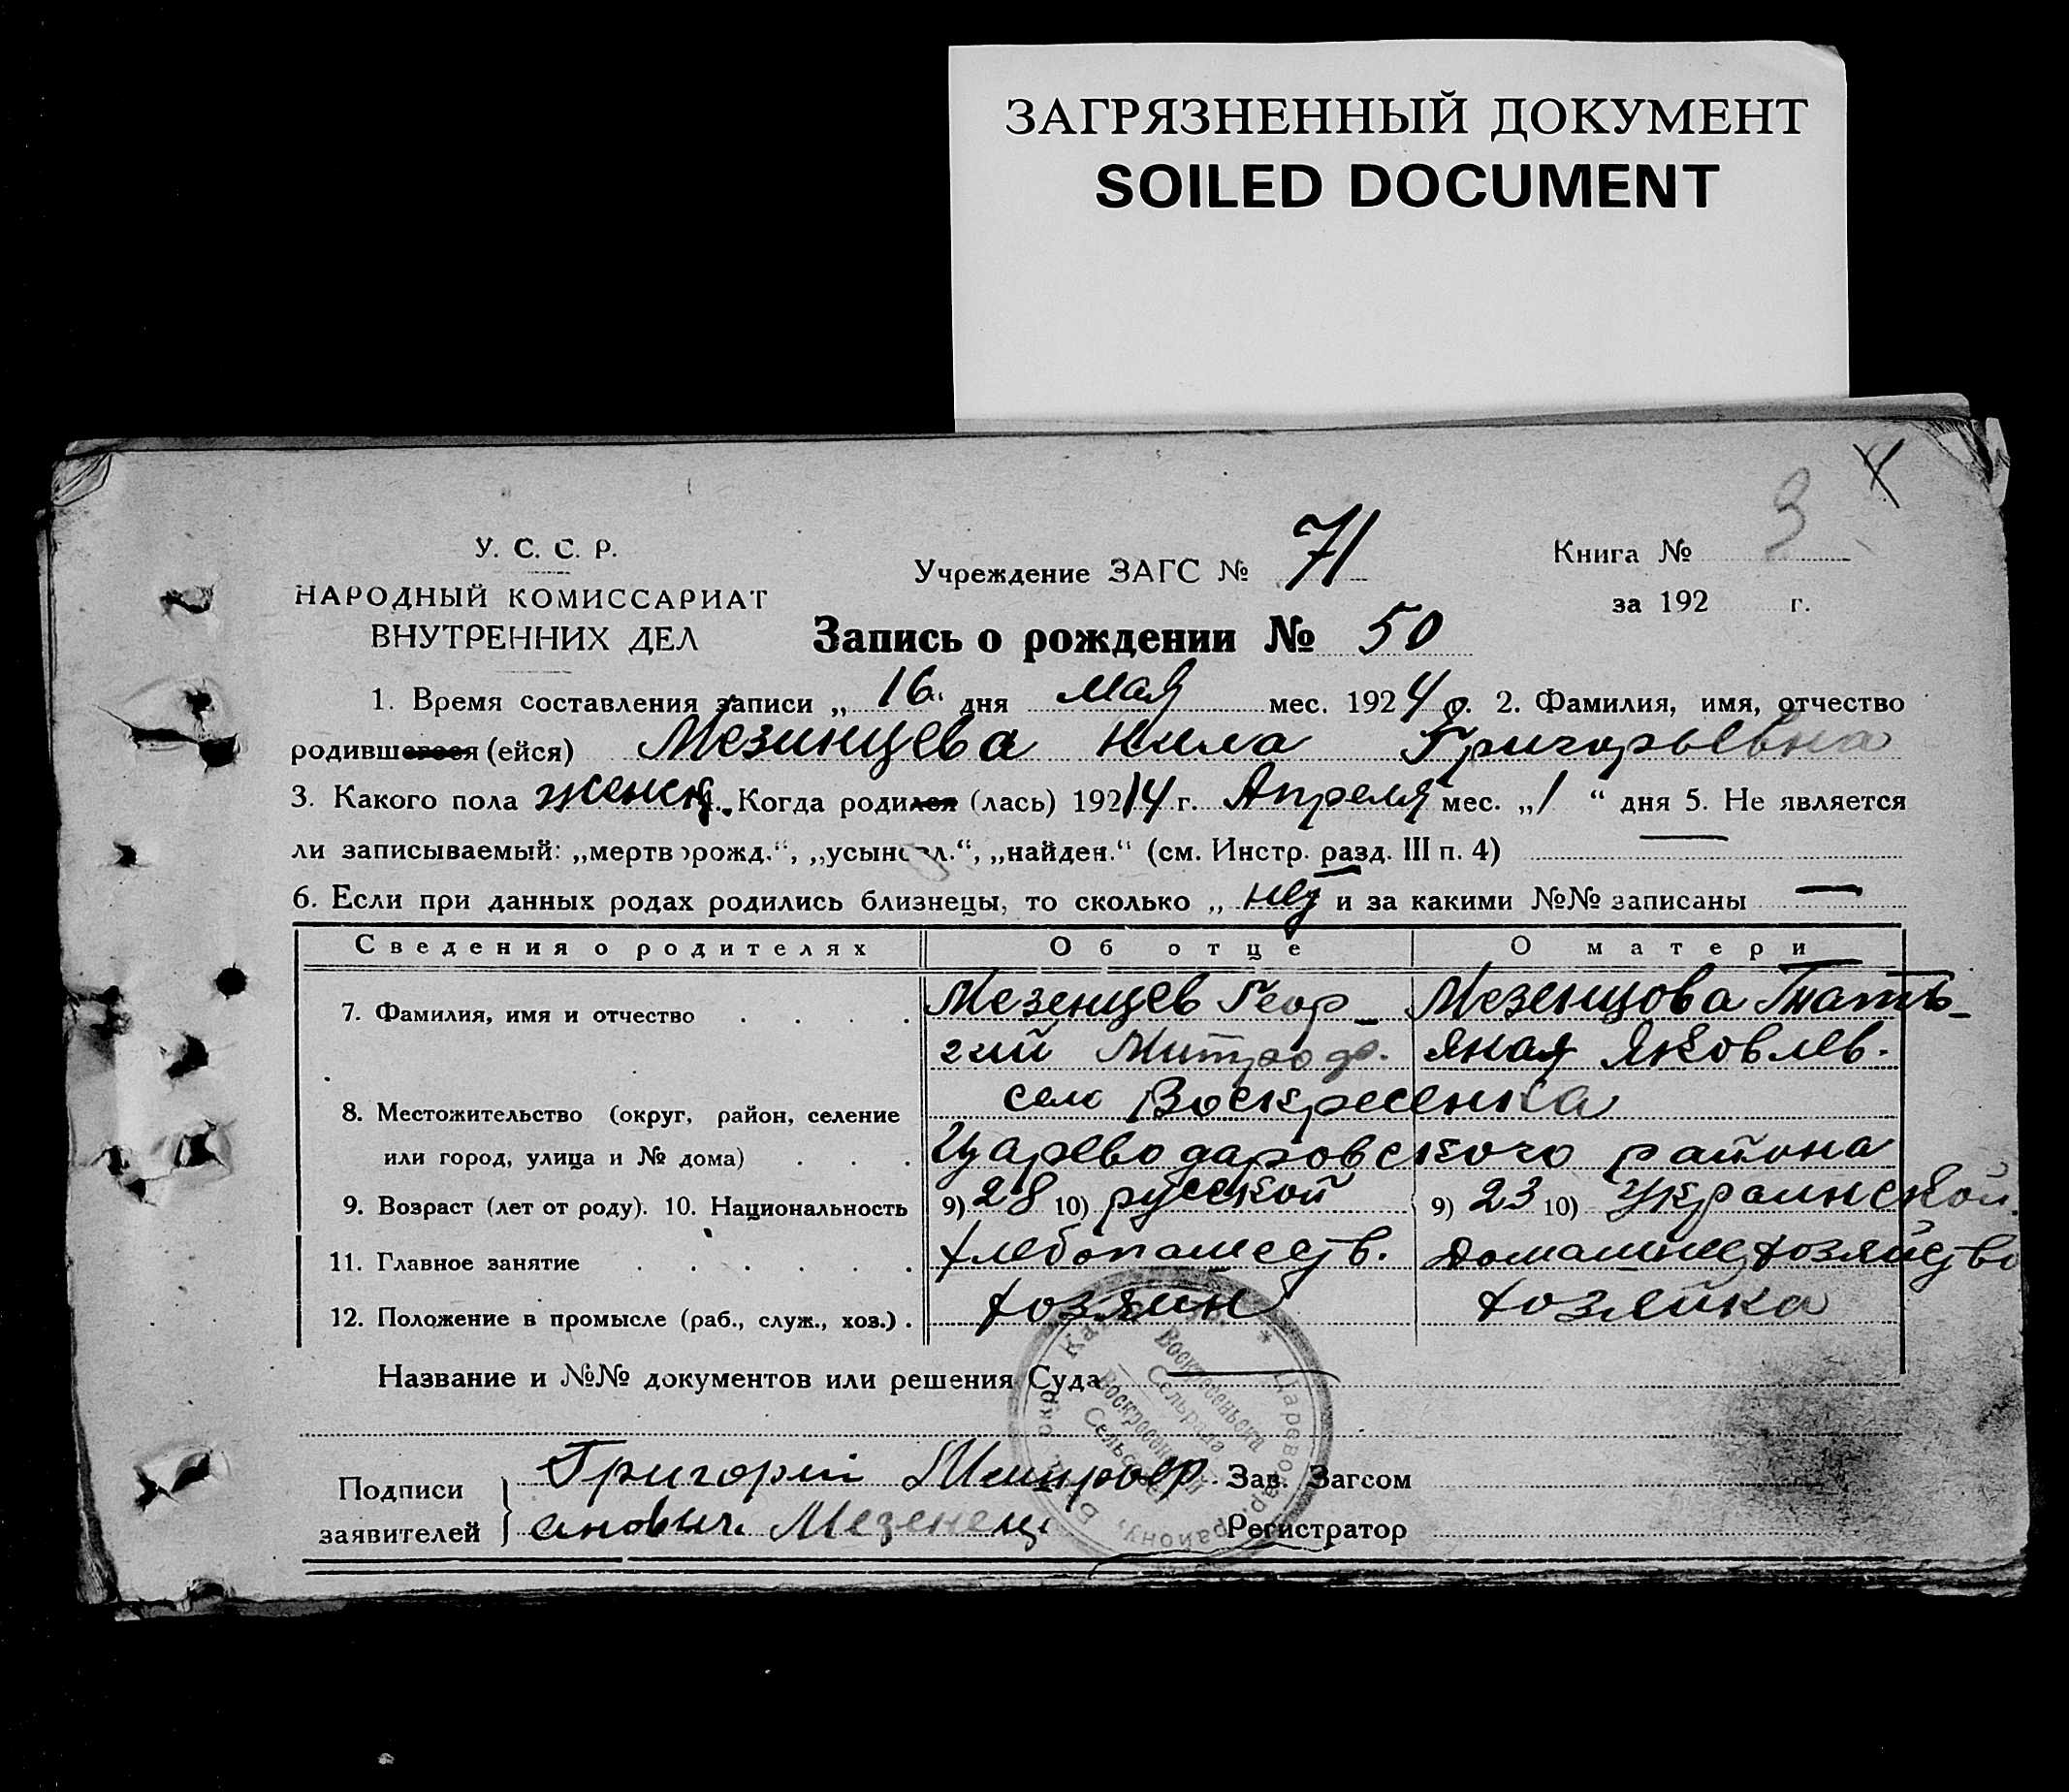 ЗАГРЯЗНЕННЫЙ ДОКУМЕНТ
SOILED DOCUMENT
У. С. С. Р.
НАРОДНЫЙ КОМИССАРИАТ
ВНУТРЕННИХ ДЕЛ
Учреждение ЗАГС № 71
Книга № 3
за 192 г.
Запись о рождении № 50
1. Время составления записи „ 16 " дня мая мес. 1924 г. 2. Фамилия, имя, отчество
родившегося (ейся) Мезинцева Нила Григорьевна
3. Какого пола женск. 4. Когда родился (лась) 19214 г. Апреля мес. „1 “ дня 5. Не является
ли записываемый: „мертворожд.“, „усыновл.“, „найден.“ (см. Инстр. разд. III п. 4) —
6. Если при данных родах родились близнецы, то сколько „ нет и за какими №№ записаны —
Сведения о родителях Об отце О матери
7. Фамилия, имя и отчество Мезенцев Геор- Мезенцова Тать-
гий Митроф. яная Яковлев.
8. Местожительство (округ, район, селение село Воскресенка
или город, улица и № дома) Цареводаровского района
9. Возраст (лет от роду). 10. Национальность 9) 28 10) русской 9) 23 10) Украинской
11. Главное занятие хлебопашеств. Домашнее хозяйство
12. Положение в промысле (раб., служ., хоз.) хозяин хозяйка
Название и №№ документов или решения Суда —
Подписи заявителей Григорій
анович Мезенец
Зав. Загсом
Регистратор
Воскресеньска
Сельрада
Воскресенский
Сельсовет